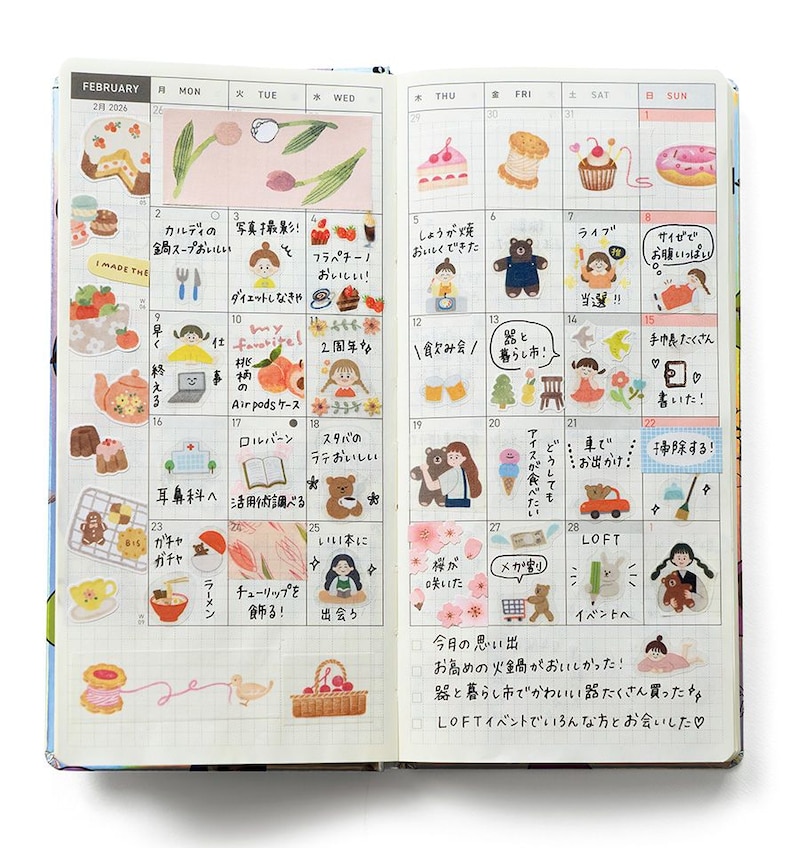 FEBRUARY
2月 2026
月 MON
火 TUE
水 WED
木 THU
金 FRI
土 SAT
日 SUN
26
29
30
31
1
I MADE THE
2
カルディの
鍋スープおいしい
3
写真撮影!
ダイエットしなきゃ
4
フラペチーノ
おいしい!
5
しょうが焼
おいしくできた
6
7
ライブ
当選!!
8
サイゼで
お腹いっぱい
W
06
9
早く
終える
仕
事
10
my
favorite!
桃柄の
Air podsケース
11
2周年
12
\飲み会/
13
器と
暮らし市!
14
15
手帳たくさん
書いた!
16
耳鼻科へ
17
ロルバーン
活用術調べる
18
スタバの
ラテおいしい
19
20
どうしても
アイスが食べたい
21
車で
お出かけ
22
掃除する!
BIS
23
ガチャ
ガチャ
ラーメン
24
チューリップを
飾る!
25
いい本に
出会う
桜が
咲いた
27
メガ割
28
LOFT
イベントへ
1
W
09
今月の思い出
お高めの火鍋がおいしかった!
器と暮らし市でかわいい器たくさん買った
LOFTイベントでいろんな方とお会いした♡